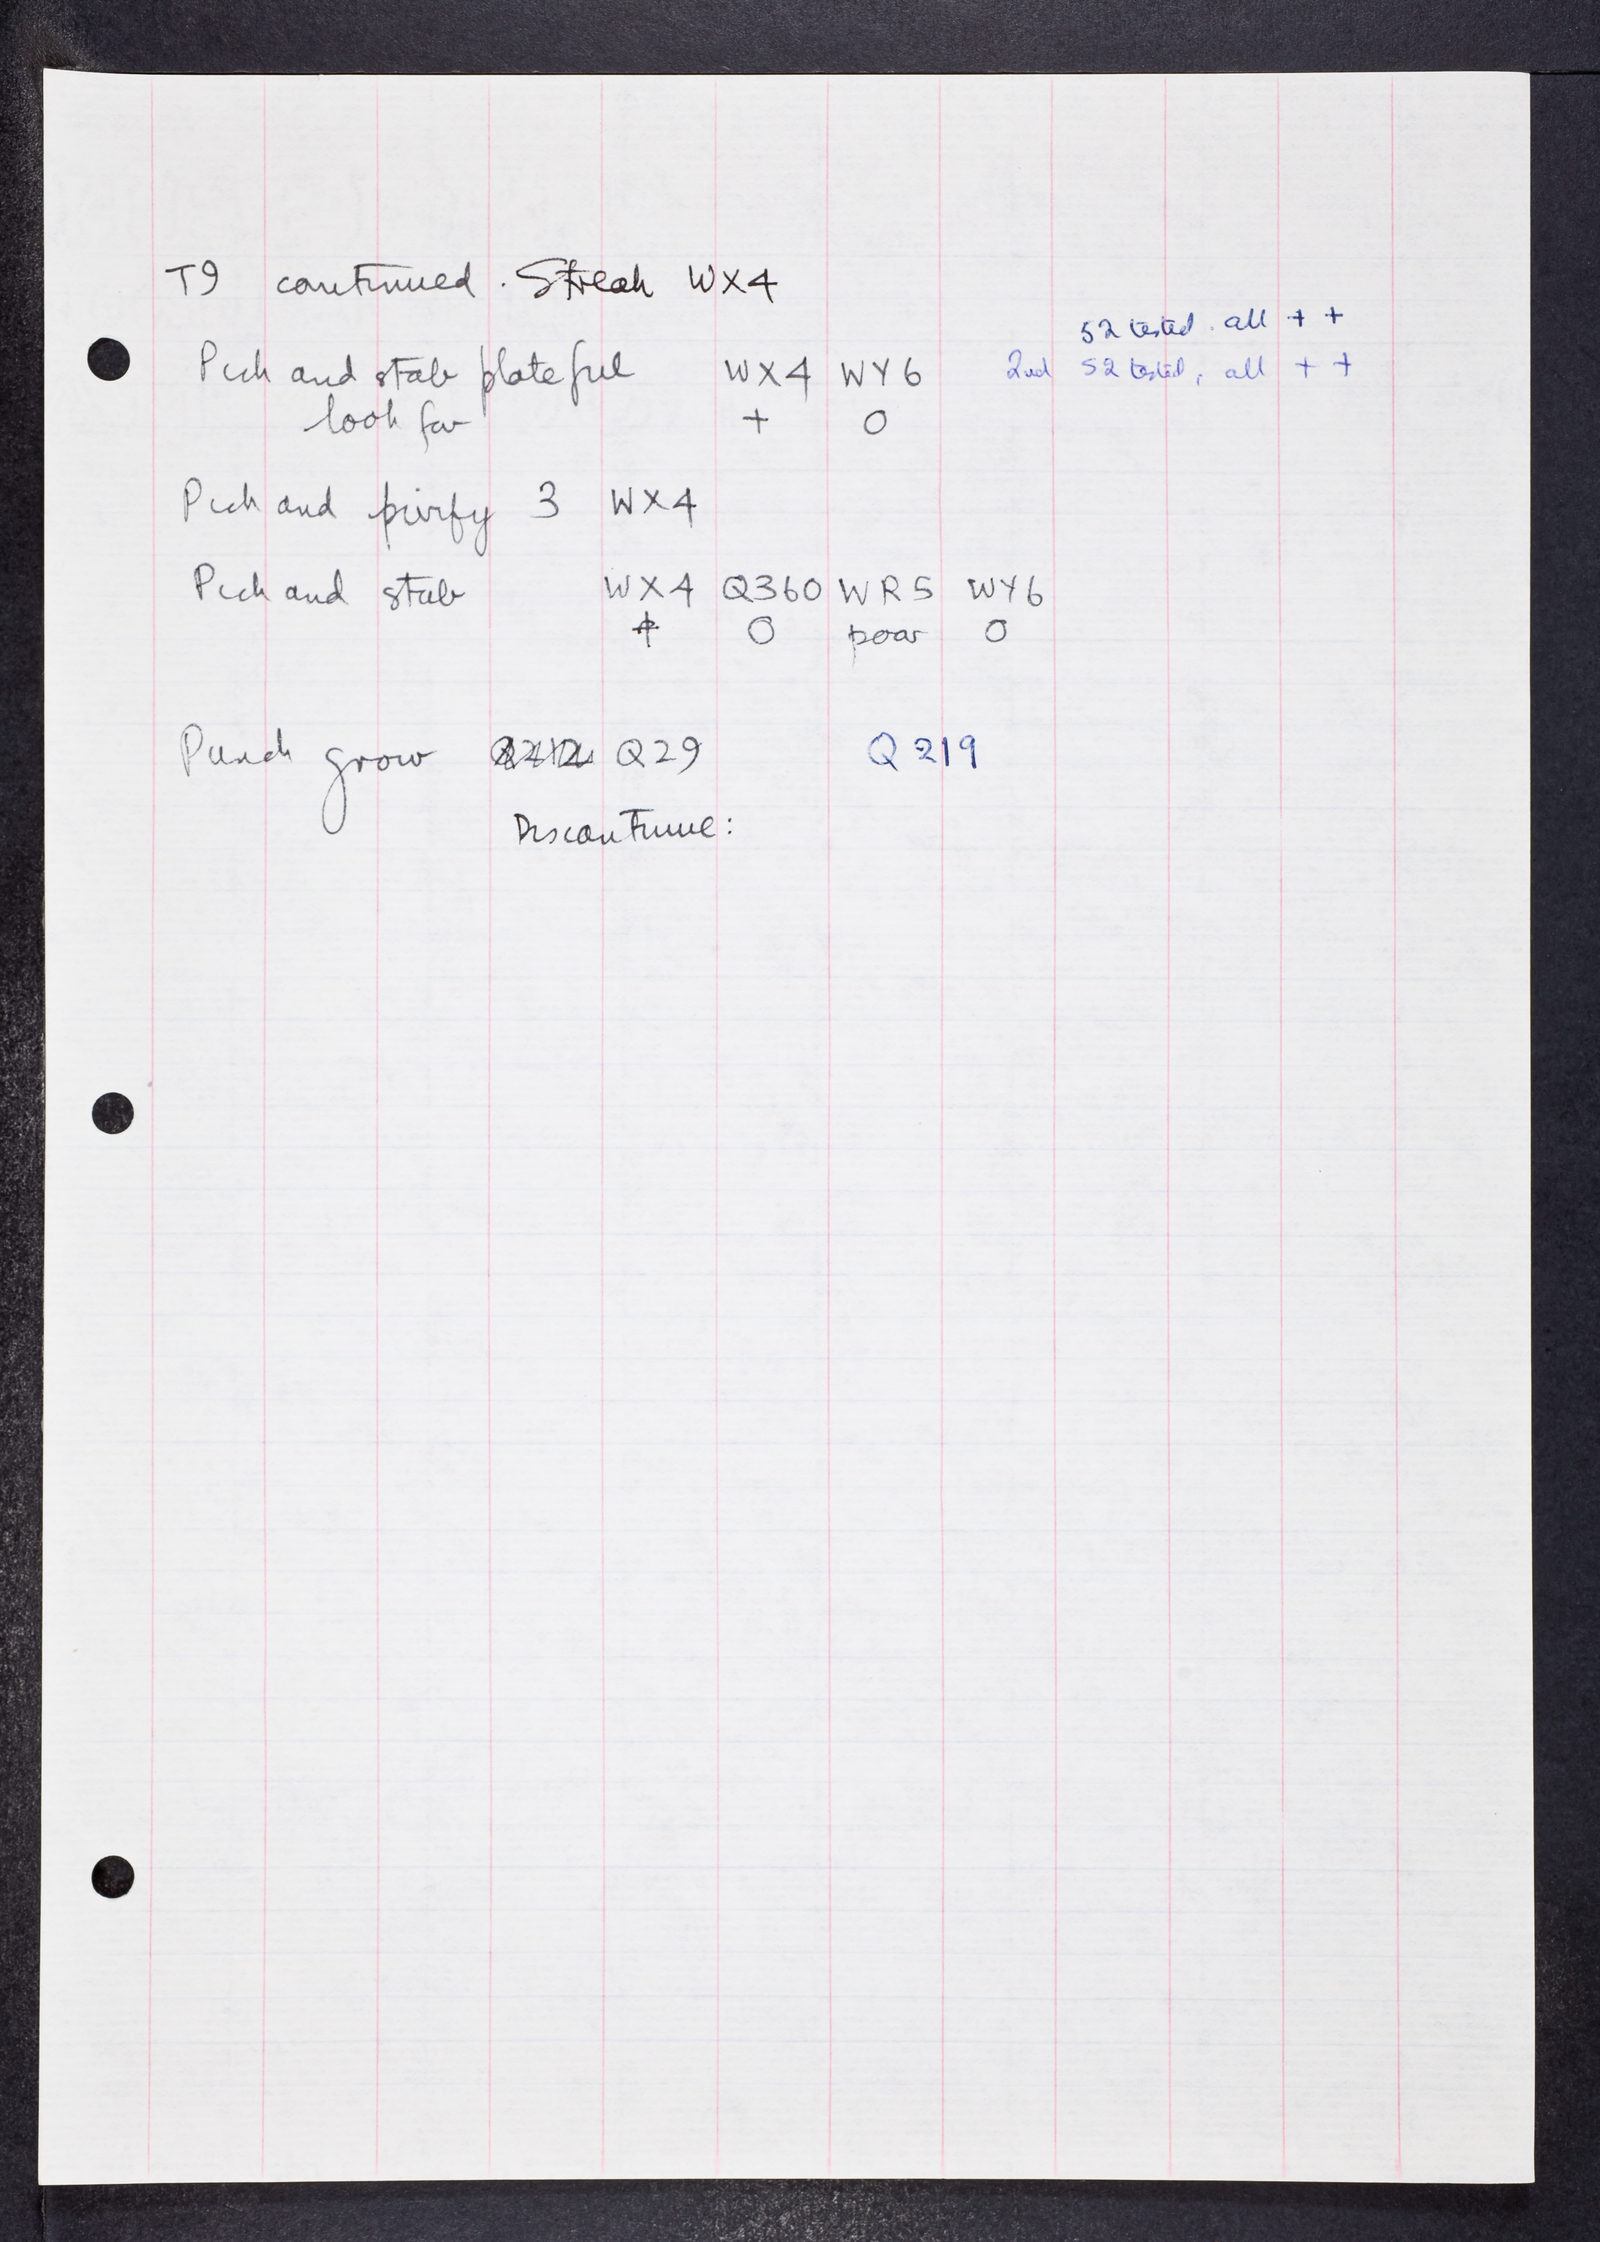 T9 continued. Streak WX4
52 tested. all + +
Pick and stab plateful WX4 WY6 2nd 52 tested, all + +
look for + O
Pick and purify 3 WX4
Pick and stab WX4 Q360 WR5 WY6
+ O poor O
Punch grow Q29 Q219
Discontinue: